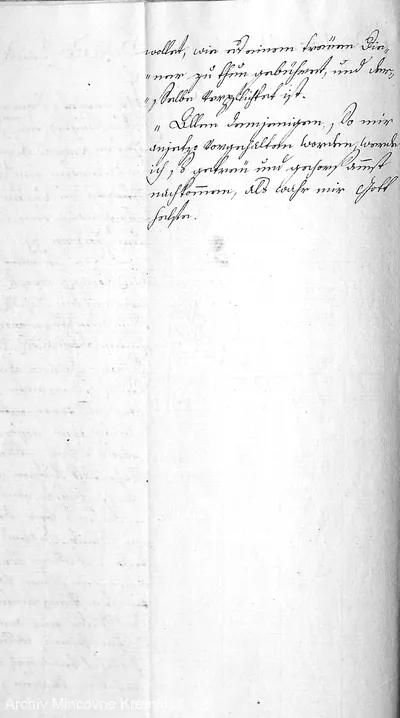 wollet, wie es einem treüen Die-
"ner zu thun gebühret, und der-
"selbe verpflichtet ist.
" Allen demjenigen, so mir
anjetzo vorgehalten worden, werde
ich, so getreu und gehorsammst
nachkommen, als wahr mir Gott
helfe.
Archiv Mincovne Kremnica